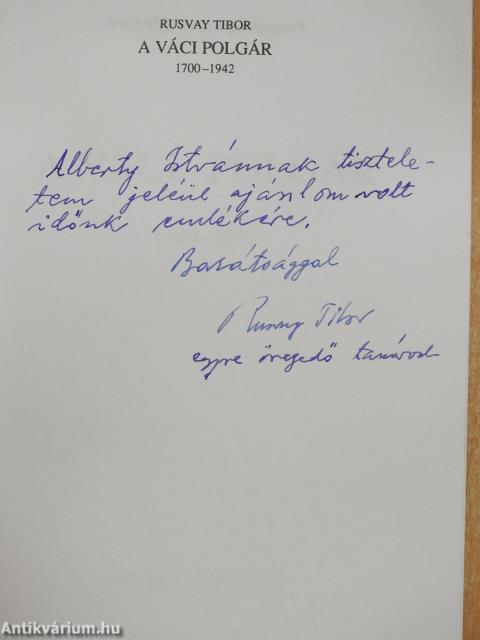 RUSVAY TIBOR
A VÁCI POLGÁR
1700–1942
Alberty Istvánnak tisztele-
tem jeléül ajánlom volt
időnk emlékére.
Barátsággal
Rusvay Tibor
egyre öregedő tanárod
Antikvárium.hu